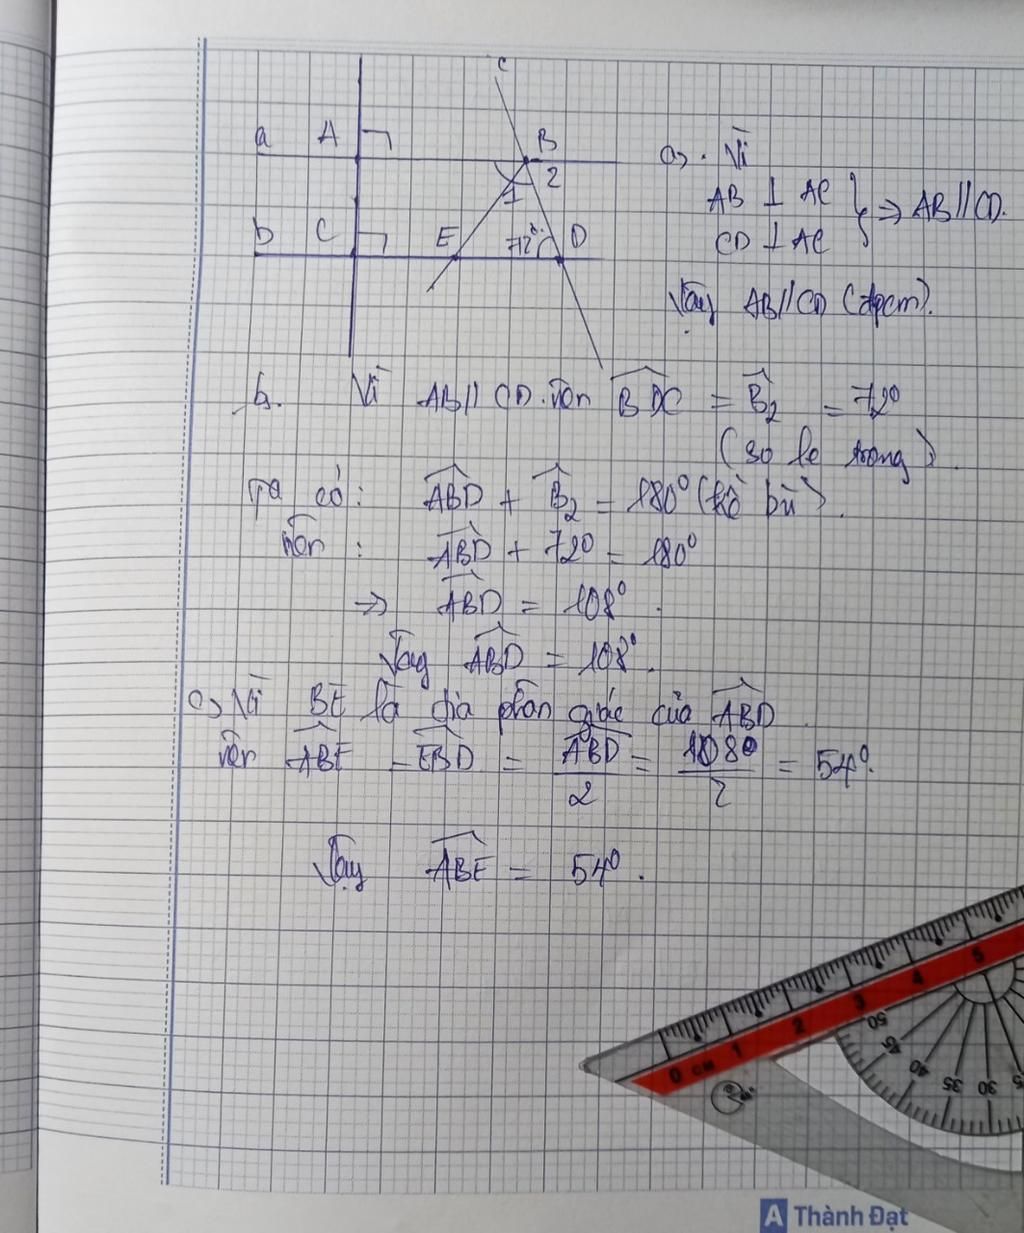 c
a A B
1 2
b C E 72° D
a, . Vì
AB ⊥ AC
CD ⊥ AC } ⇒ AB // CD.
Vậy AB // CD (đpcm).
b. Vì AB // CD nên BDC = B₂ = 72°
(so le trong).
Ta có: ABD + B₂ = 180° (kề bù).
nên : ABD + 72° = 180°
⇒ ABD = 108°.
Vậy ABD = 108°.
c, Vì BE là tia phân giác của ABD
nên ABE = EBD = ABD/2 = 108°/2 = 54°.
Vậy ABE = 54°.
0 CM 1 2 3 4 5
50 45 40 35 30
A Thành Đạt